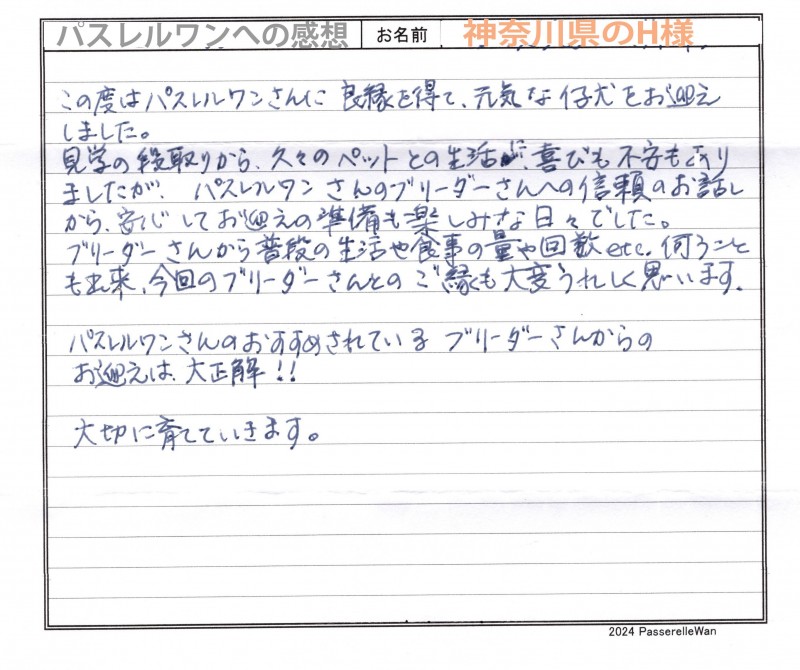 パスレルワンへの感想 お名前 神奈川県のH様
この度はパスレルワンさんに良縁を得て、元気な仔犬をお迎え
しました。
見学の段取りから、久々のペットとの生活が、喜びも不安もどり
ましたが、パスレルワンさんのブリーダーさんへの信頼のお話し
から、安心してお迎えの準備も楽しみな日々でした。
ブリーダーさんから普段の生活や食事の量や回数etc.伺うこと
も出来、今回のブリーダーさんとのご縁も大変うれしく思います。
パスレルワンさんのおすすめされているブリーダーさんからの
お迎えは、大正解!!
大切に育てていきます。
2024 PasserelleWan